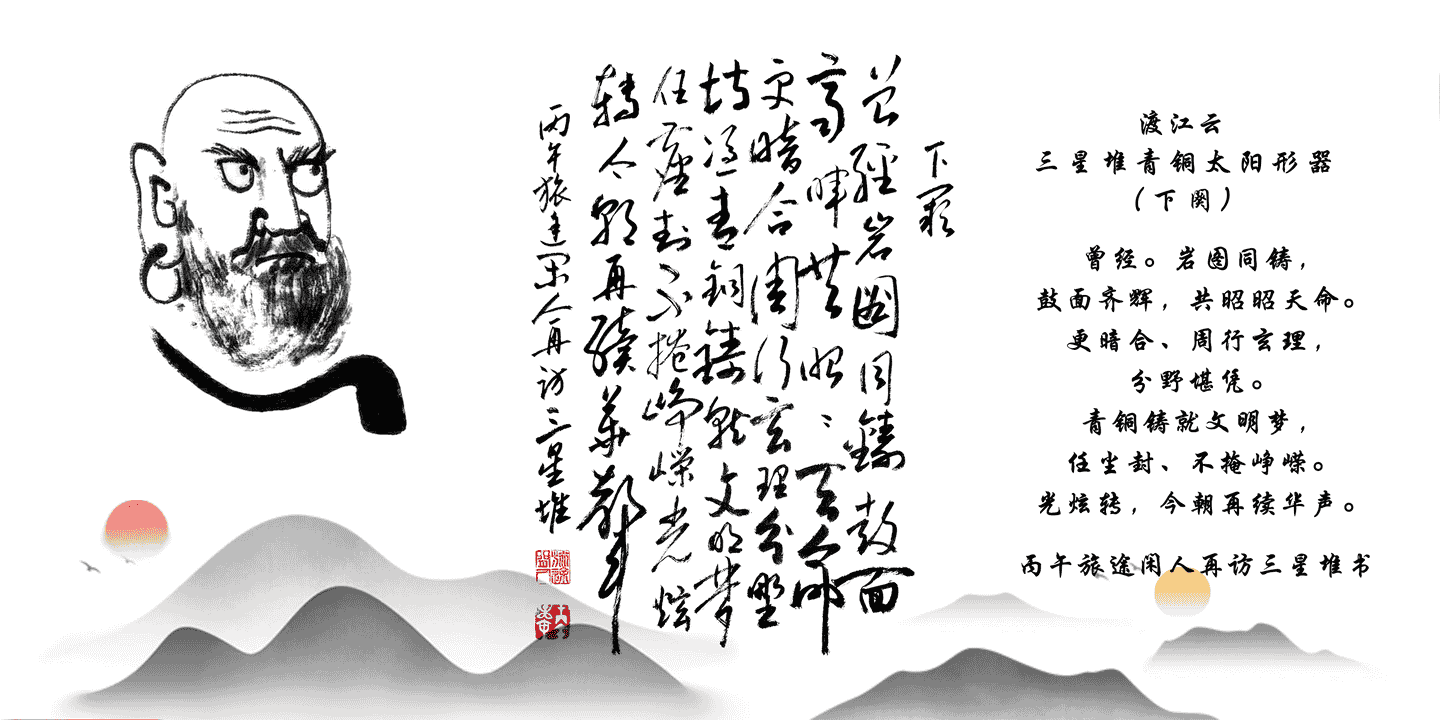 下闋
曾經岩圖同鑄鼓面
齊暉共昭〻天命
更暗合周行玄理分野
堪凭青銅鑄就文明夢
任塵封不掩崢嶸光炫
轉今朝再續華聲
丙午旅途闲人再访三星堆
渡江云
三星堆青铜太阳形器
（下阕）
曾经。岩图同铸，
鼓面齐辉，共昭昭天命。
更暗合、周行玄理，
分野堪凭。
青铜铸就文明梦，
任尘封、不掩峥嵘。
光炫转，今朝再续华声。
丙午旅途闲人再访三星堆书